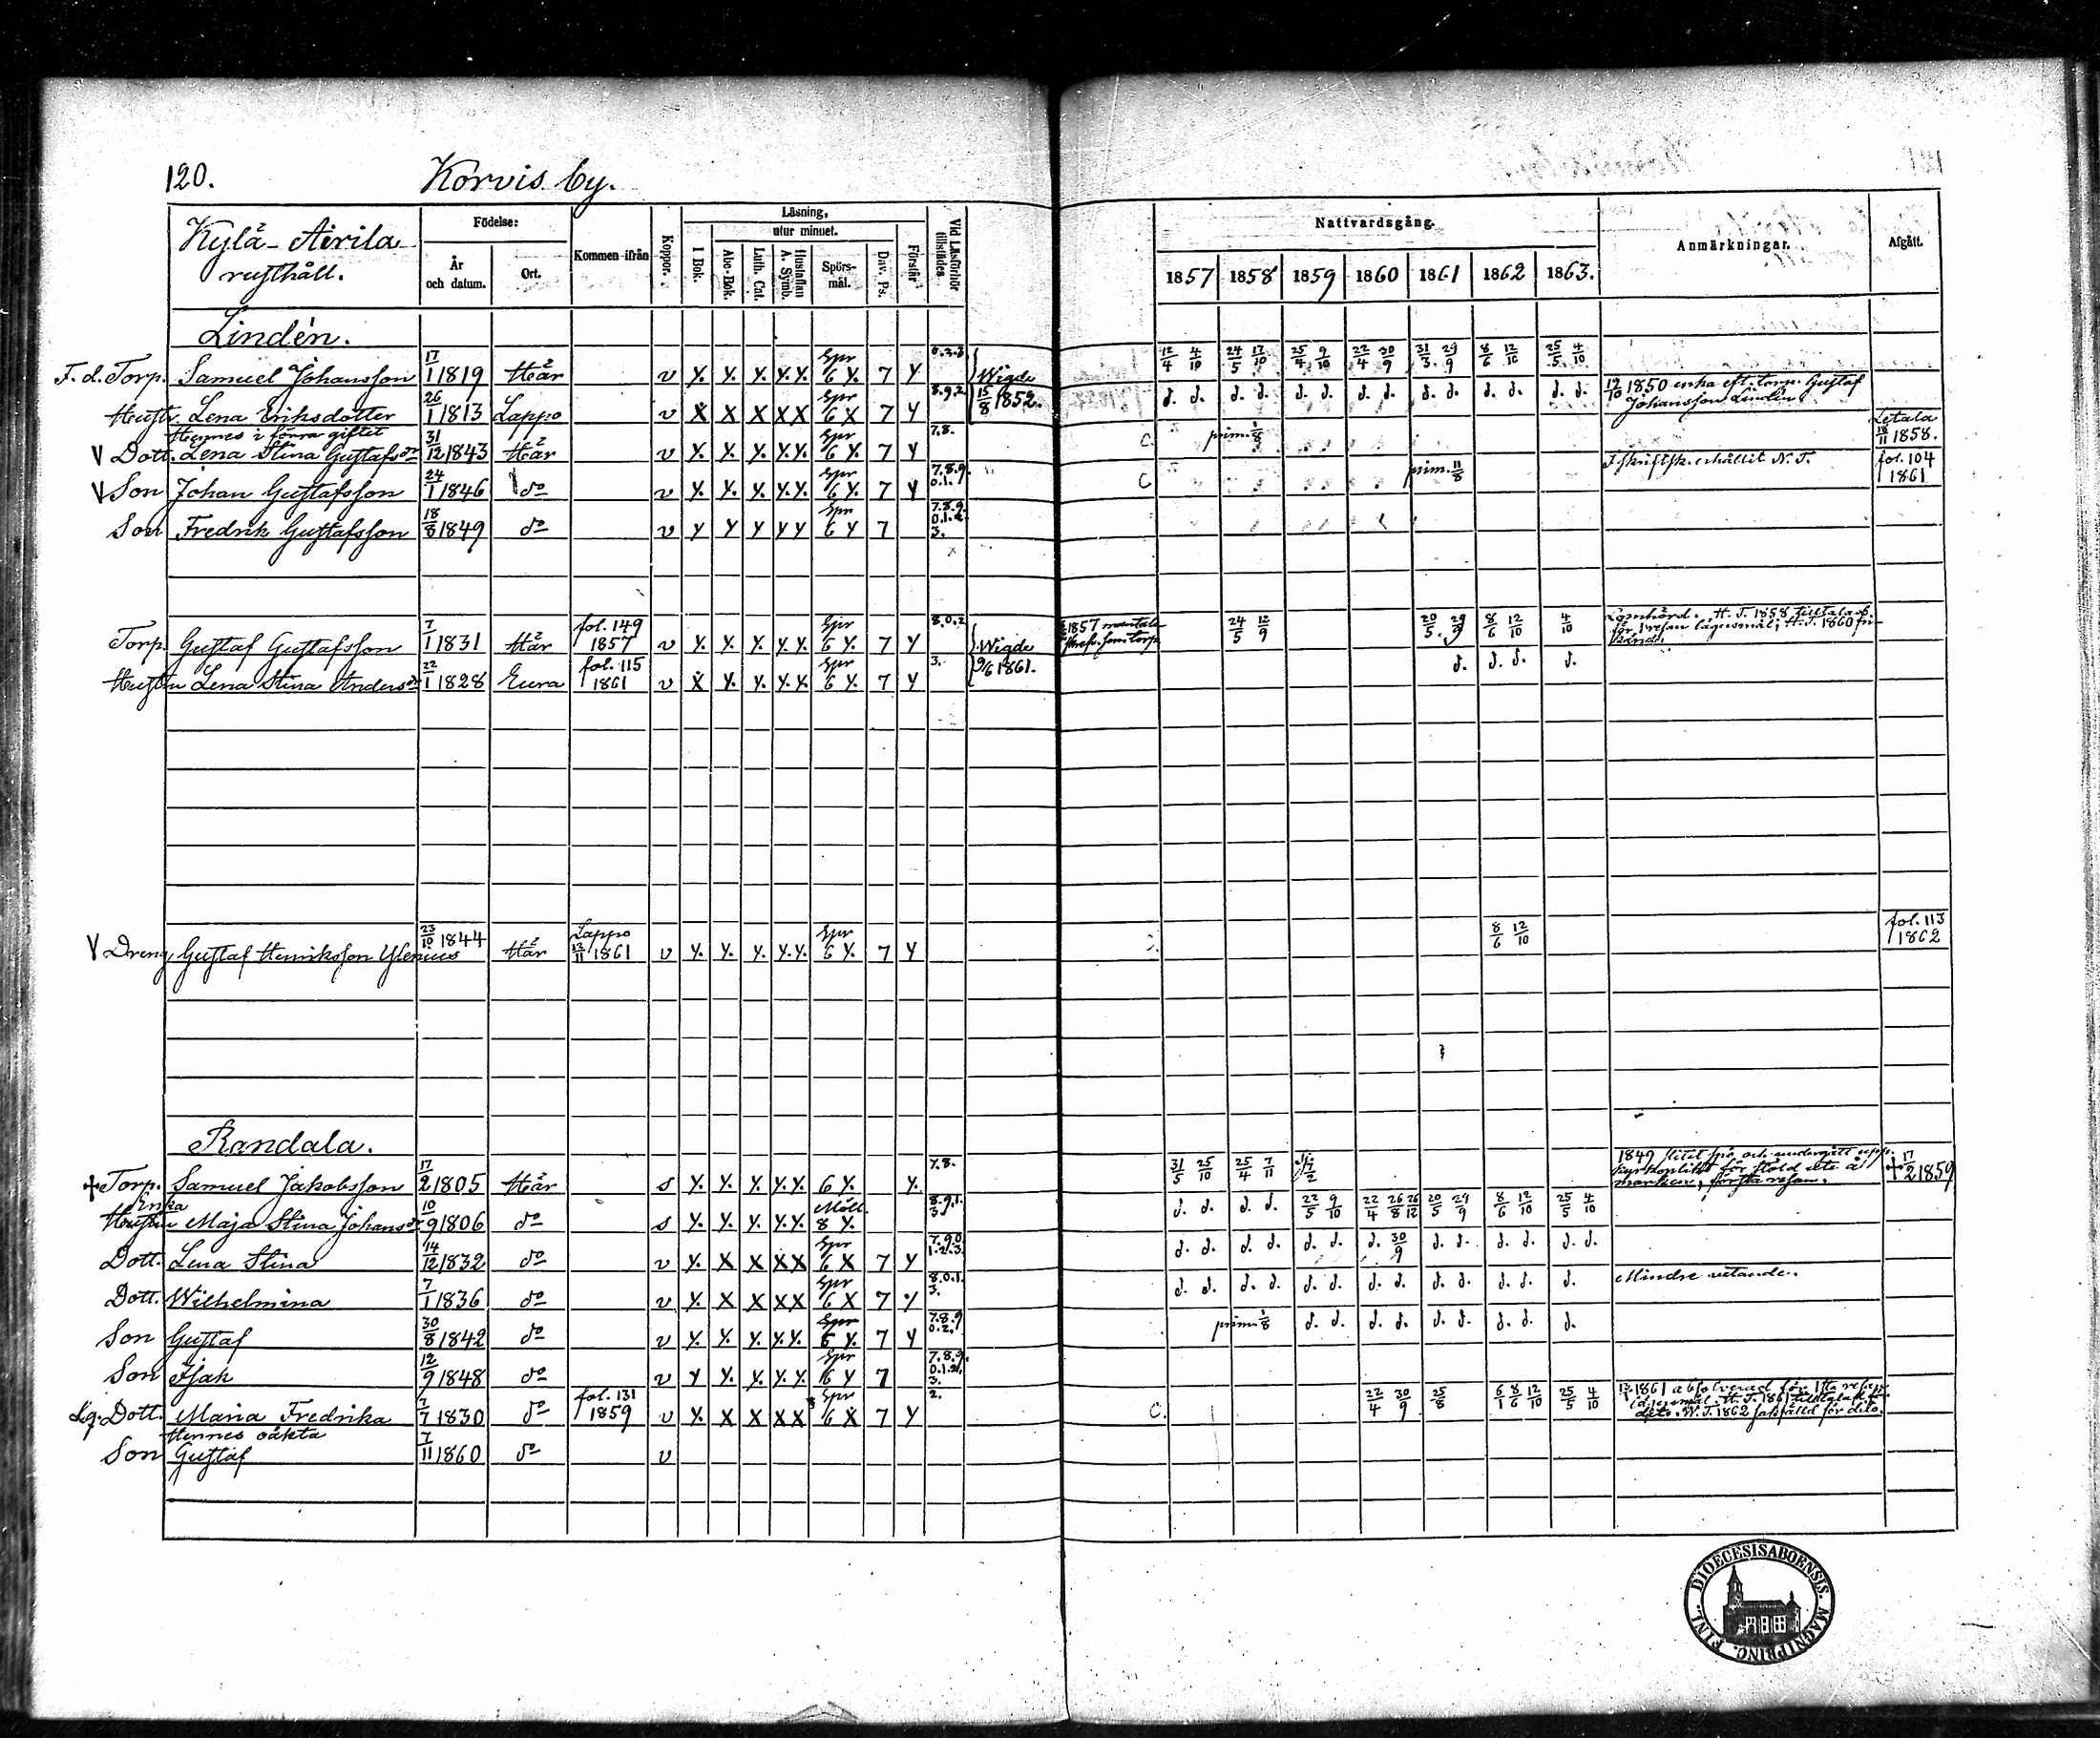 120. Korvis by.
Kylä-Airila rusthåll.
Födelse: År och datum. Ort. Kommen ifrån Koppor. Läsning, I Bok. utur minnet. Abc-Bok. Luth. Cat. Hustaflan A. Symb. Spörs-mål. Dav. Ps. Förstår Vid Läsförhör tillstädes
Nattvardsgång. 1857 1858 1859 1860 1861 1862 1863. Anmärkningar. Afgått.
Lindén.
F. d. Torp. Samuel Johansson 17/1 1819 Här v Y. Y. Y. Y.Y. Spr 6 Y. 7 Y 0.2.3 Wigde 15/8 1852. 12/4 4/10 24/5 17/10 25/4 9/10 22/4 30/9 31/3 29/9 8/6 12/10 25/5 4/10
Hustr. Lena Eriksdotter 26/1 1813 Lappo v X X X X X Spr 6 X 7 Y 8.9.2 d. d. d. d. d. d. d. d. d. d. d. d. d. d. 12/10 1850 enka eft. torp. Gustaf Johansson Lindén
Hennes i förra giftet
V Dott. Lena Stina Gustafsdr 31/12 1843 Här v Y. Y. Y. Y.Y. Spr 6 Y. 7 Y 7.8. C. prim. 1/8 Letala 18/11 1858.
V Son Johan Gustafsson 24/1 1846 do v Y. Y. Y. Y.Y. Spr 6 Y. 7 Y 7.8.9. 0.1. C prim. 11/8 I skriftsk. erhållit N. T. fol. 104 1861
Son Fredrik Gustafsson 18/8 1849 do v Y Y Y Y Y Spr 6 Y 7 7.8.9. 0.1.2. 3.
Torp. Gustaf Gustafsson 7/1 1831 Här fol. 149 1857 v Y. Y. Y. Y.Y. Spr 6 Y. 7 Y 8.0.2 Wigde 9/6 1861. 1857 som torp. 24/5 12/9 20/5 29/9 8/6 12/10 4/10 Lomhörd. H. T. 1858 tilltalad för 1 resan lägersmål; H. T. 1860
Hustru Lena Stina Andersdr 22/1 1828 Eura fol. 115 1861 v X Y. Y. Y.Y. Spr 6 Y. 7 Y 3. d. d. d. d.
V Dreng Gustaf Henriksson Ylenius 23/10 1844 Här Lappo 12/11 1861 v Y. Y. Y. Y.Y. Spr 6 Y. 7 Y 8/6 12/10 fol. 113 1862
Randala.
† Torp. Samuel Jakobsson 17/2 1805 Här s Y. Y. Y. Y.Y. 6 Y. Y. 7.8. 31/5 25/10 25/4 7/11 1849 slitit spö och undergått första resan. † 17/2 1859
Enka
Hustru Maja Stina Johansdr 10/9 1806 do s Y. Y. Y. Y.Y. 8 Y. 8.9.1. 3. d. d. d. d. 22/5 9/10 22/4 26/8 26/12 20/5 29/9 8/6 12/10 25/5 4/10
Dott. Lena Stina 14/12 1832 do v Y. X X X X Spr 6 X 7 Y 7.9.0. 1.2.3. d. d. d. d. d. d. d. 30/9 d. d. d. d. d. d.
Dott. Wilhelmina 7/1 1836 do v Y. X X X X Spr 6 X 7 Y 8.0.1. 3. d. d. d. d. d. d. d. d. d. d. d. d. d. Mindre vetande.
Son Gustaf 30/8 1842 do v Y. Y. Y. Y.Y. Spr 6 Y. 7 Y 7.8.9 0.2. prim. 1/8 d. d. d. d. d. d. d. d. d.
Son Isak 12/9 1848 do v Y Y. Y. Y.Y. Spr 6 Y 7 7.8.9. 0.1.2. 3.
Lg. Dott. Maria Fredrika 7/7 1830 do fol. 131 1859 v Y. X X X X Spr 6 X 7 Y 2. C. 22/4 30/9 25/8 6/1 8/6 12/10 25/5 4/10 1861 absolverad för 1sta resan lägersmål. H. T. 1861 tilltalad för dito. W. T. 1862 sakfälld för dito.
Hennes oäkta
Son Gustaf 7/11 1860 do v
DIOECESIS ABOENSIS. MAGNI PRINC. FINL.